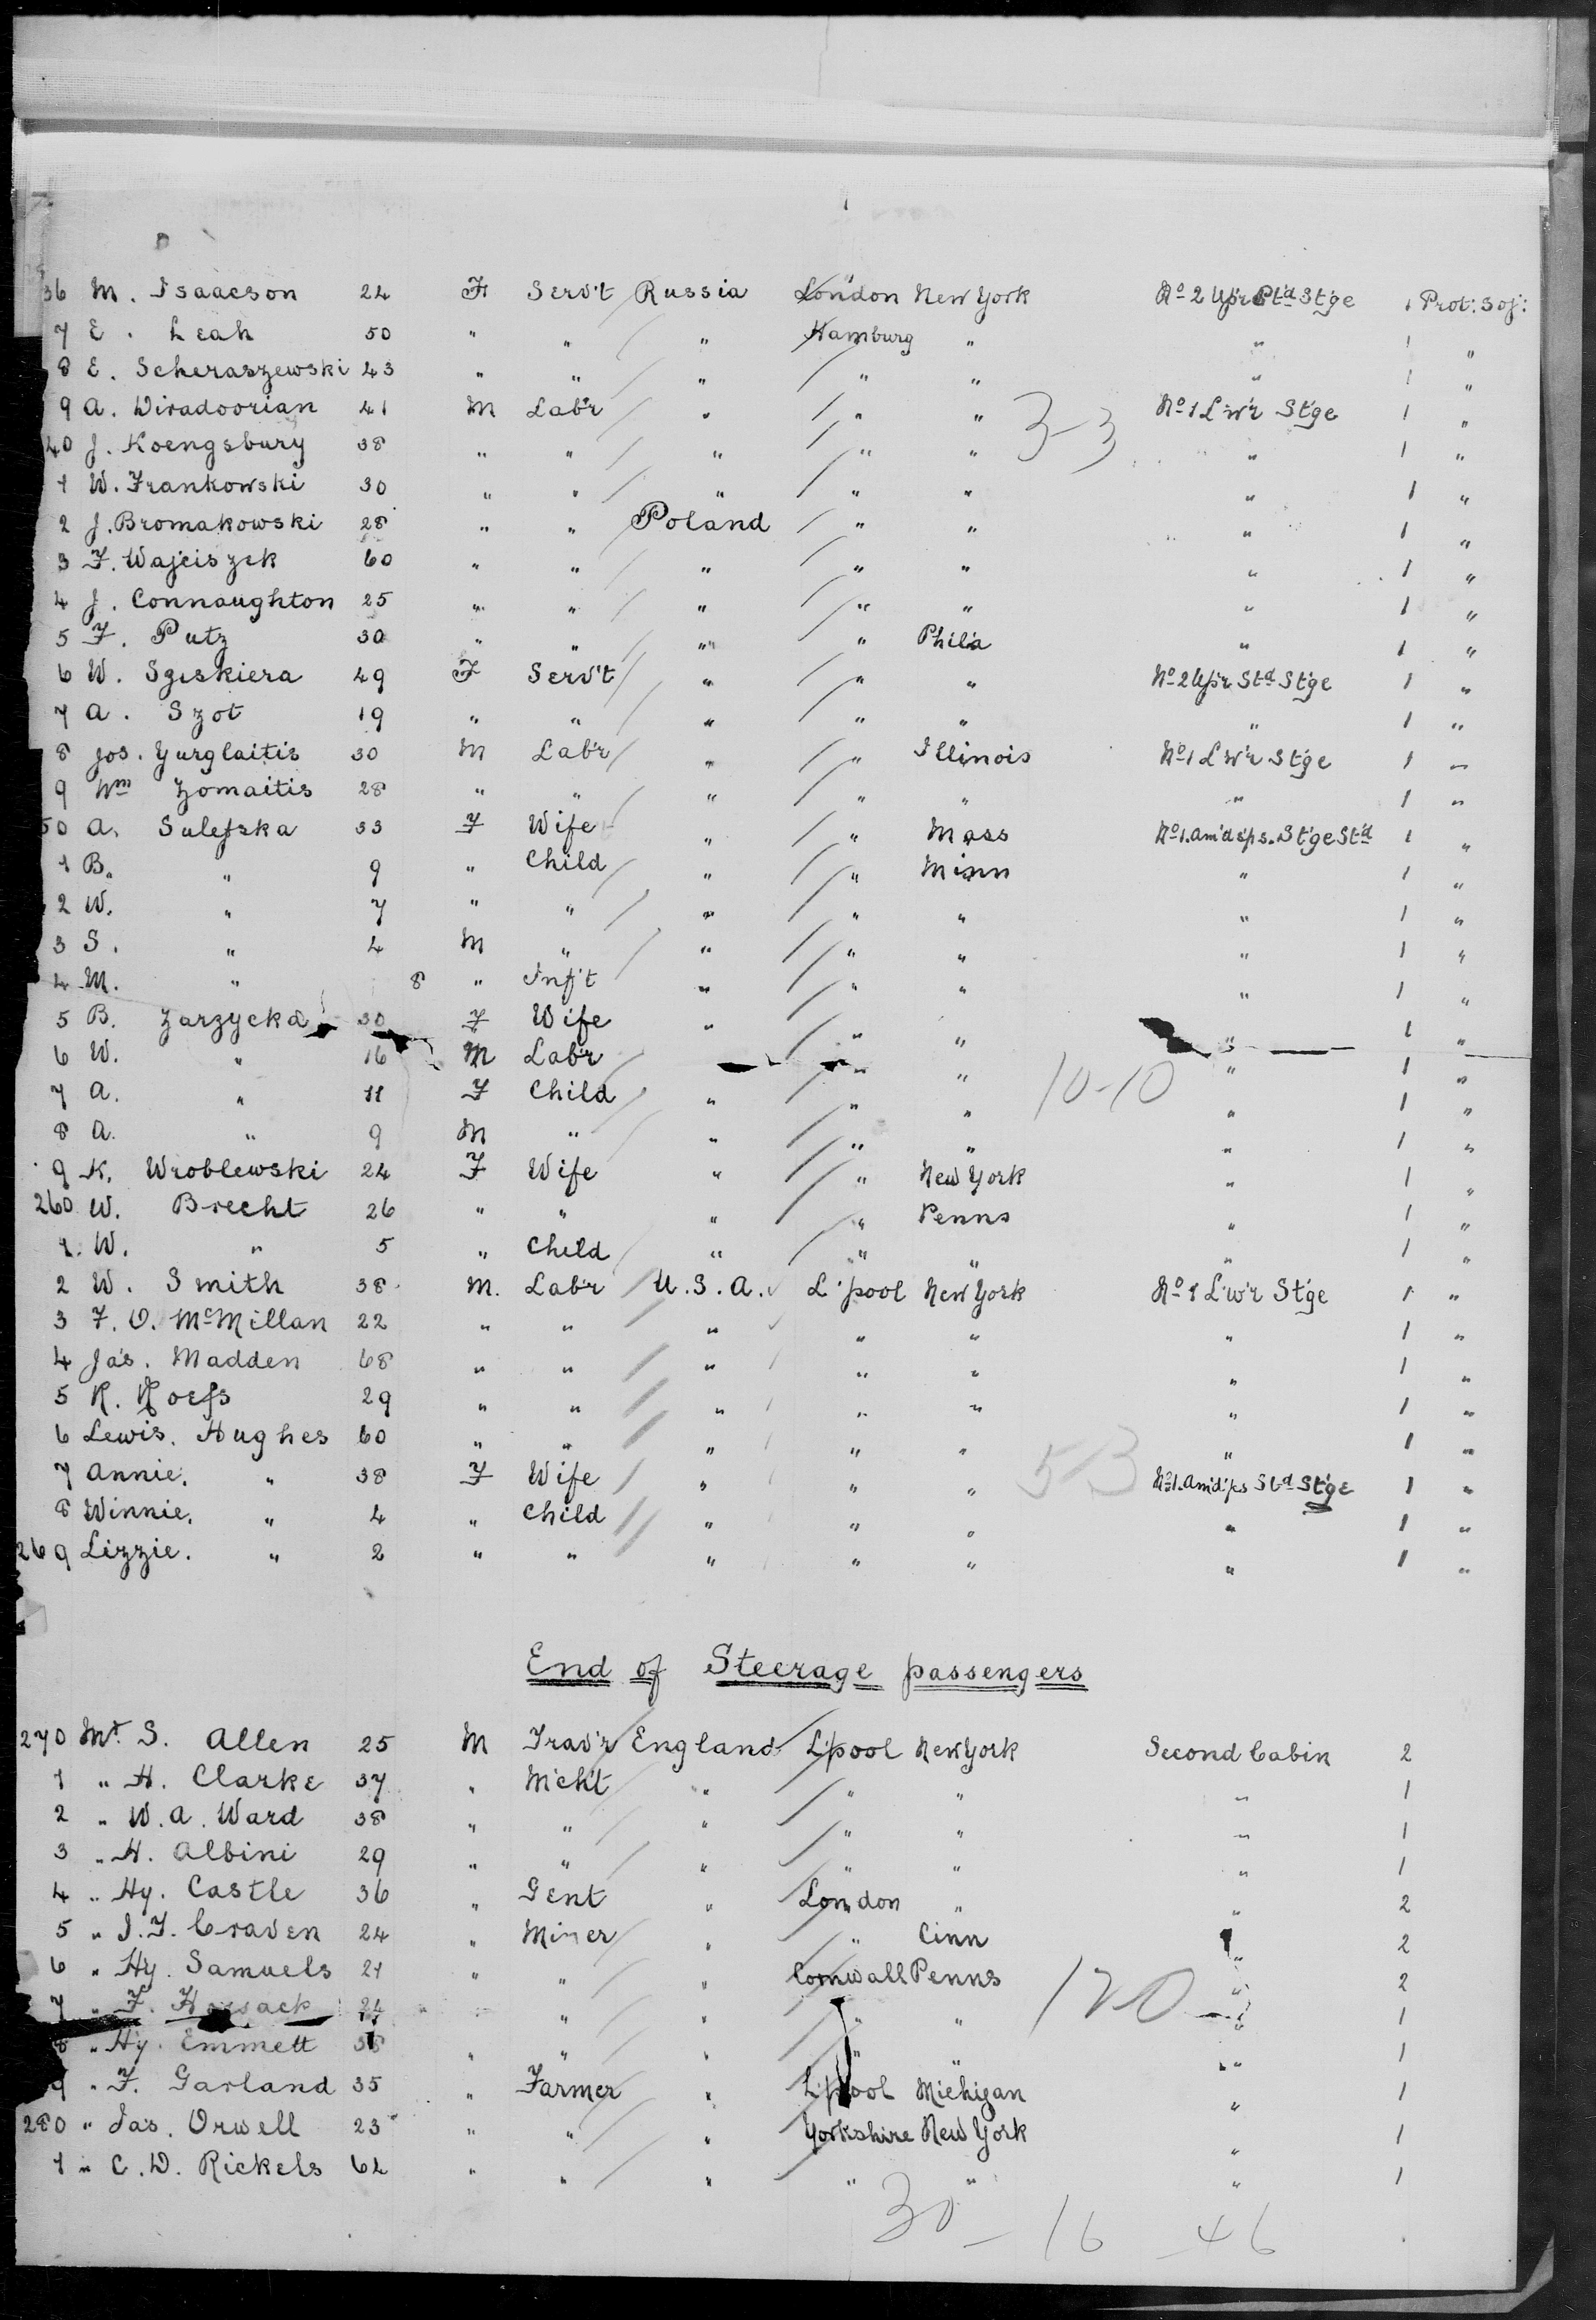 36 M. Isaacson 24 F Serv't Russia London New York No 2 Up'r Std St'ge 1 Prot: Soj:
7 E. Leah 50 " " " Hamburg " " 1 "
8 E. Scheraszewski 43 " " " " " " 1 "
9 A. Diradoorian 41 M Lab'r " " " No 1 L'w'r St'ge 1 "
40 J. Koengsbury 38 " " " " " " 1 "
1 W. Frankowski 30 " " " " " " 1 "
2 J. Bromakowski 28 " " Poland " " " 1 "
3 F. Wajciszek 60 " " " " " " 1 "
4 J. Connaughton 25 " " " " " " 1 "
5 F. Putz 30 " " " " Phil'a " 1 "
6 W. Sgiskiera 49 F Serv't " " " No 2 Up'r Std St'ge 1 "
7 A. Szot 19 " " " " " " 1 "
8 Jos. Yurglaitis 30 M Lab'r " " Illinois No 1 L'w'r St'ge 1 "
9 Wm Zomaitis 28 " " " " " " 1 "
50 A. Sulefska 33 F Wife " " Mass No 1. Am'ds'ps. St'ge Std 1 "
1 B. " 9 " Child " " Minn " 1 "
2 W. " 7 " " " " " " 1 "
3 S. " 4 M " " " " " 1 "
4 M. " 8 " Inf't " " " " 1 "
5 B. Zarzycka 30 F Wife " " " " 1 "
6 W. " 16 M Lab'r " " " 1 "
7 A. " 11 F Child " " " " 1 "
8 A. " 9 M " " " " " 1 "
9 K. Wroblewski 24 F Wife " " New York " 1 "
260 W. Brecht 26 " " " " Penns " 1 "
1. W. " 5 " Child " " " " 1 "
2 W. Smith 38 M. Lab'r U.S.A. L'pool New York No 1 L'w'r St'ge 1 "
3 F. O. McMillan 22 " " " " " " 1 "
4 Ja's. Madden 68 " " " " " " 1 "
5 R. Roefs 29 " " " " " " 1 "
6 Lewis. Hughes 60 " " " " " " 1 "
7 Annie. " 38 F Wife " " " No 1. Am'd'ps Std St'ge 1 "
8 Winnie. " 4 " Child " " " " 1 "
269 Lizzie. " 2 " " " " " " 1 "
3-3
10-10
5-3
End of Steerage passengers
270 Mr S. Allen 25 M Trav'r England L'pool New York Second Cabin 2
1 " H. Clarke 37 " M'ch't " " " " 1
2 " W. A. Ward 38 " " " " " " 1
3 " H. Albini 29 " " " " " " 1
4 " Hy. Castle 36 " Gent " London " " 2
5 " J. F. Craven 24 " Miner " " Cinn " 2
6 " Hy. Samuels 21 " " " Cornwall Penns " 2
7 " F. 24 " " " " " " 1
8 " Hy. Emmett 38 " " " " " " 1
9 " F. Garland 35 " Farmer " L'pool Michigan " 1
280 " Jas. Orwell 23 " " " Yorkshire New York " 1
1 " C. D. Rickels 64 " " " " " " 1
120
30 - 16 46